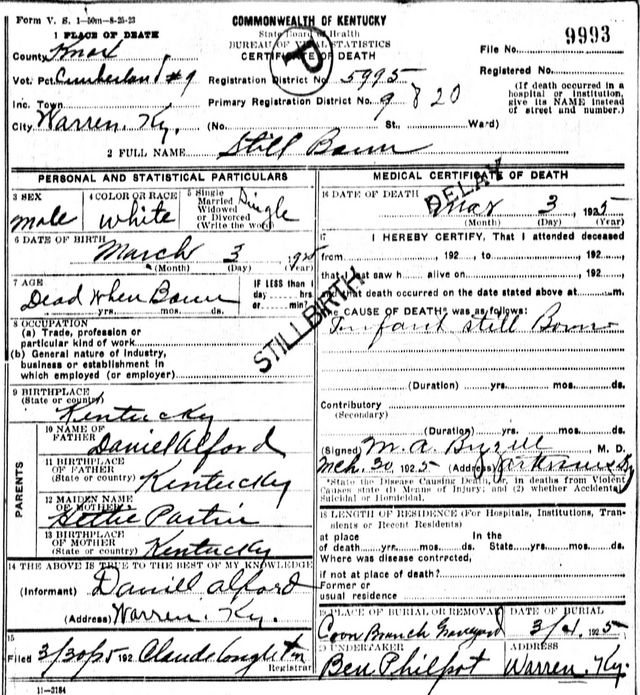 Form V. S. 1—50m—8-25-23
COMMONWEALTH OF KENTUCKY
State Board of Health
BUREAU OF VITAL STATISTICS
CERTIFICATE OF DEATH
1 PLACE OF DEATH
County Knox
Vot. Pct. Cumberland #9
Inc. Town
City Warren, Ky.
Registration District No. 5995
Primary Registration District No. 9820
(No. St., Ward)
File No. 9993
Registered No.
(If death occurred in a hospital or institution, give its NAME instead of street and number.)
2 FULL NAME Still Born
PERSONAL AND STATISTICAL PARTICULARS
3 SEX
male
4 COLOR OR RACE
White
5 Single Married Widowed or Divorced (Write the word)
Single
6 DATE OF BIRTH
March 3, 1925
(Month) (Day) (Year)
7 AGE
Dead When Born
yrs. mos. ds.
IF LESS than 1 day hrs or min?
STILLBIRTH
8 OCCUPATION
(a) Trade, profession or particular kind of work
(b) General nature of industry, business or establishment in which employed (or employer)
9 BIRTHPLACE
(State or country)
Kentucky
PARENTS
10 NAME OF FATHER
Daniel Alford
11 BIRTHPLACE OF FATHER
(State or country) Kentucky
12 MAIDEN NAME OF MOTHER
Hettie Partin
13 BIRTHPLACE OF MOTHER
(State or country) Kentucky
14 THE ABOVE IS TRUE TO THE BEST OF MY KNOWLEDGE
(Informant) Daniel Alford
(Address) Warren, Ky.
15
Filed 3/30/25 192 Claude
Registrar
11—3184
MEDICAL CERTIFICATE OF DEATH
DELAY
16 DATE OF DEATH
Mar 3, 1925
(Month) (Day) (Year)
17 I HEREBY CERTIFY, That I attended deceased
from , 192 , to , 192 ,
that I last saw h alive on , 192 ,
and that death occurred on the date stated above at m.
The CAUSE OF DEATH* was as follows:
Infant still Born
(Duration) yrs. mos. ds.
Contributory
(Secondary)
(Duration) yrs. mos. ds.
(Signed) M. A. , M. D.
Mch. 30, 1925 (Address)
*State the Disease Causing Death, or, in deaths from Violent Causes state (1) Means of Injury; and (2) whether Accidental, Suicidal or Homicidal.
18 LENGTH OF RESIDENCE (For Hospitals, Institutions, Transients or Recent Residents)
at place of death yrs. mos. ds. In the State yrs. mos. ds.
Where was disease contracted,
if not at place of death?
Former or usual residence
19 PLACE OF BURIAL OR REMOVAL
Coon Branch Graveyard
DATE OF BURIAL
3/4, 1925
20 UNDERTAKER
Ben Philpot
ADDRESS
Warren, Ky.